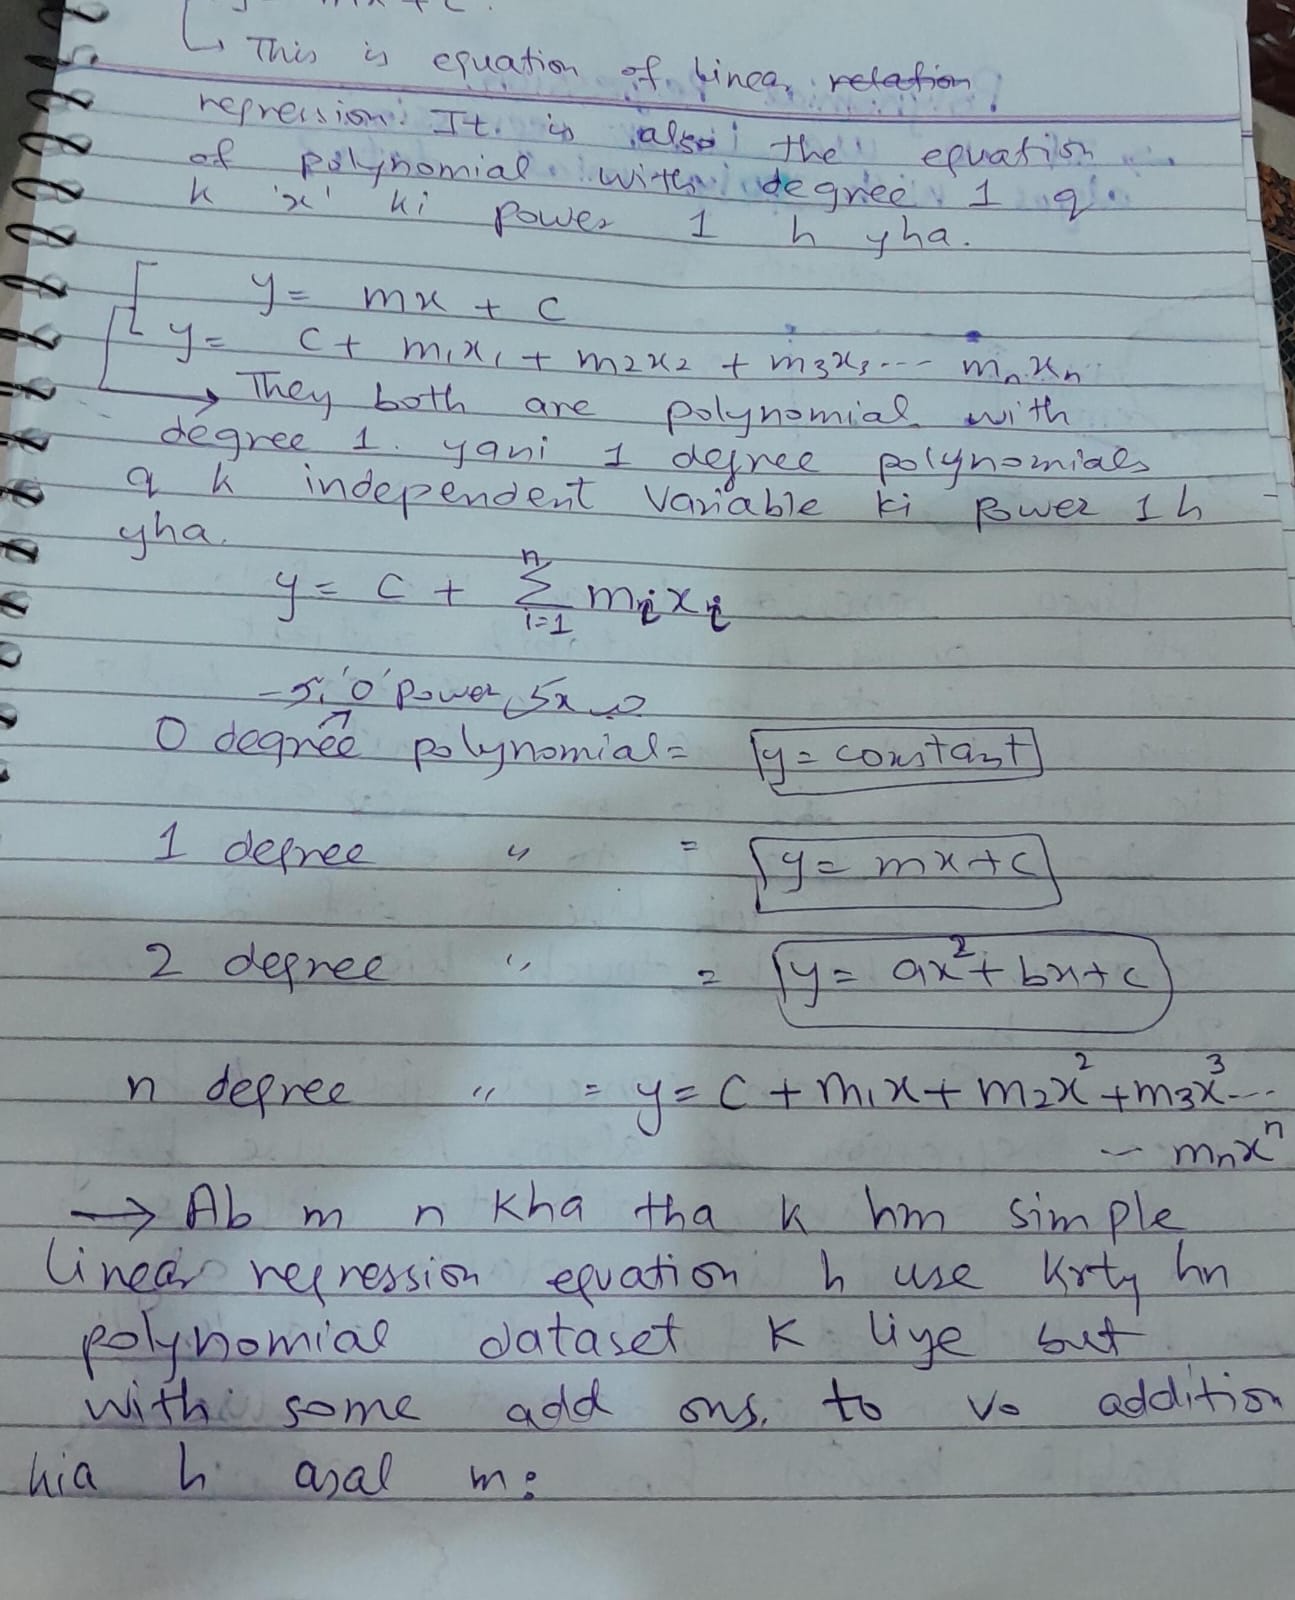 ↳ This is equation of linear relation
regression. It is also the equation
of polynomial with degree 1 q
k 'x' ki power 1 h yha.
y = mx + c
y = c + m₁x₁ + m₂x₂ + m₃x₃ --- mₙxₙ
→ They both are polynomial with
degree 1. yani 1 degree polynomials
q k independent variable ki power 1 h
yha.
y = c + Σⁿᵢ₌₁ mᵢxᵢ
'0' power, 5x
0 degree polynomial = y = constant
1 degree " = y = mx+c
2 degree " = y = ax² + bx + c
n degree " = y = c + m₁x + m₂x² + m₃x³ ---
-- mₙxⁿ
→ Ab m n kha tha k hm simple
linear regression equation h use krty hn
polynomial dataset k liye but
with some add ons. to vo addition
kia h asal m: